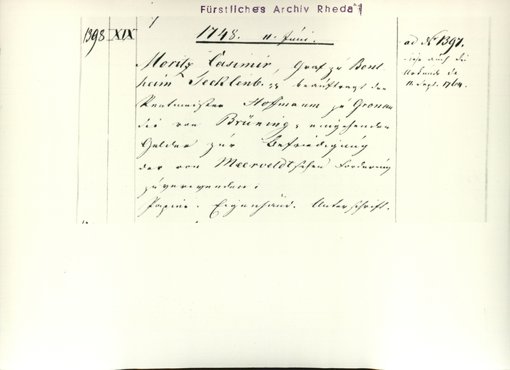 Fürstliches Archiv Rheda
1398 XIX
1748. 11. Juni.
Moritz Casimir, Graf zu Bent-
heim Tecklenb., beauftragt den
Rentmeister Hofmann zu Gronau
die von Brüning, eingehenden
Gelder zur Befriedigung
der von Meerveldt'schen Forderung
zu verwenden;
Papier. Eigenhänd. Unterschrift.
ad № 1397.
siehe auch die
Urkunde de
11. Sept. 1764.